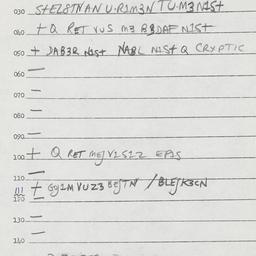 030 StELSTNAN U·RJM3N TU·M3N1St
040 t Q RET VUS M3 B3DAF N1St
050 t JAB3R N1St NABL N1St Q CRYPTIC
060 —
070 —
080 —
090 —
100 t Q RET MEJV1S1Z EPJS
110 —
111 t GY1M VUZ3 BEJTN / BLEJK3CN
120 —
130 —
140 —